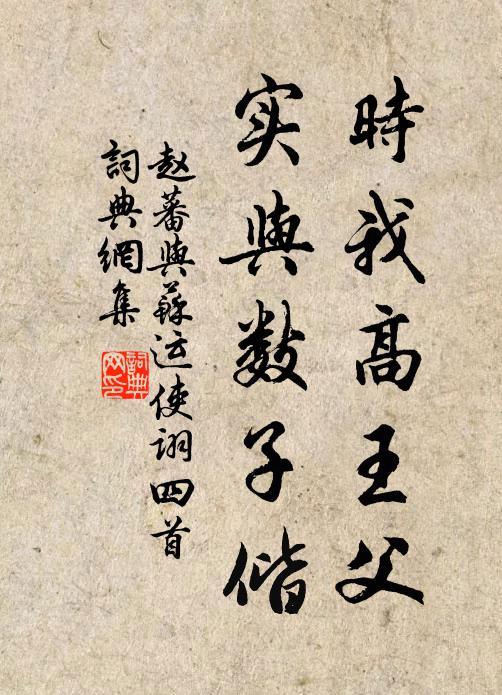 時我高王父
实與數子偕
赵蕃與蘇运使詡四首
詞典網集
詞典網印